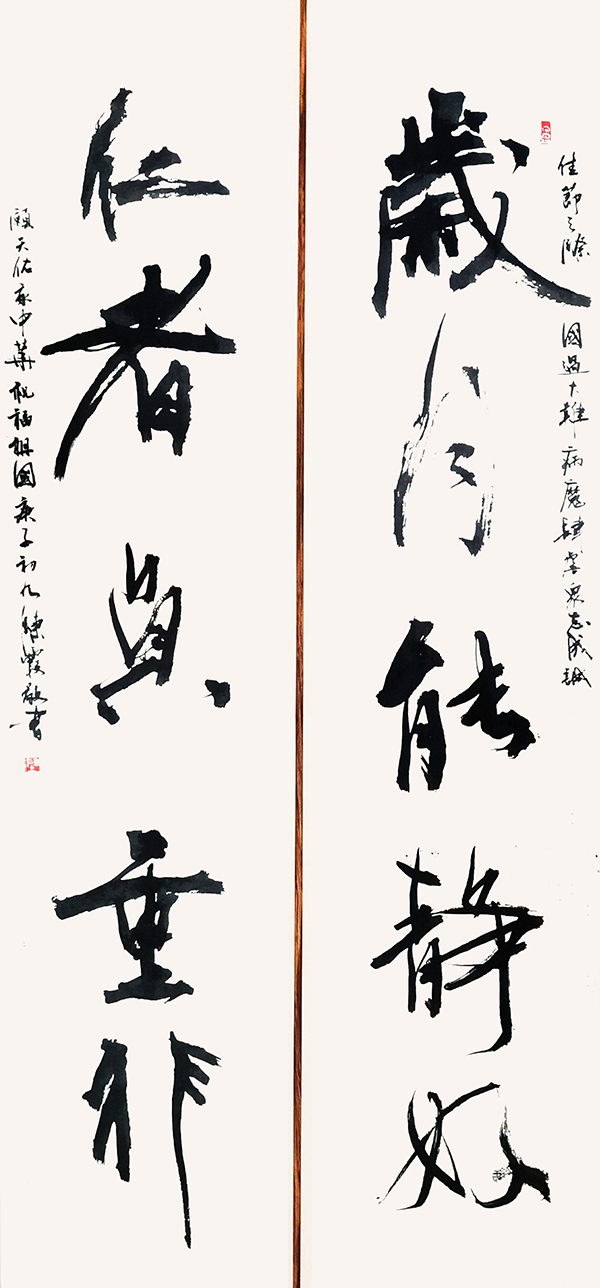 佳節之際國遇大難病魔肆虐眾志成城
歲月能靜好
仁者負重行
願天佑我中華祝福祖國庚子初九敬書